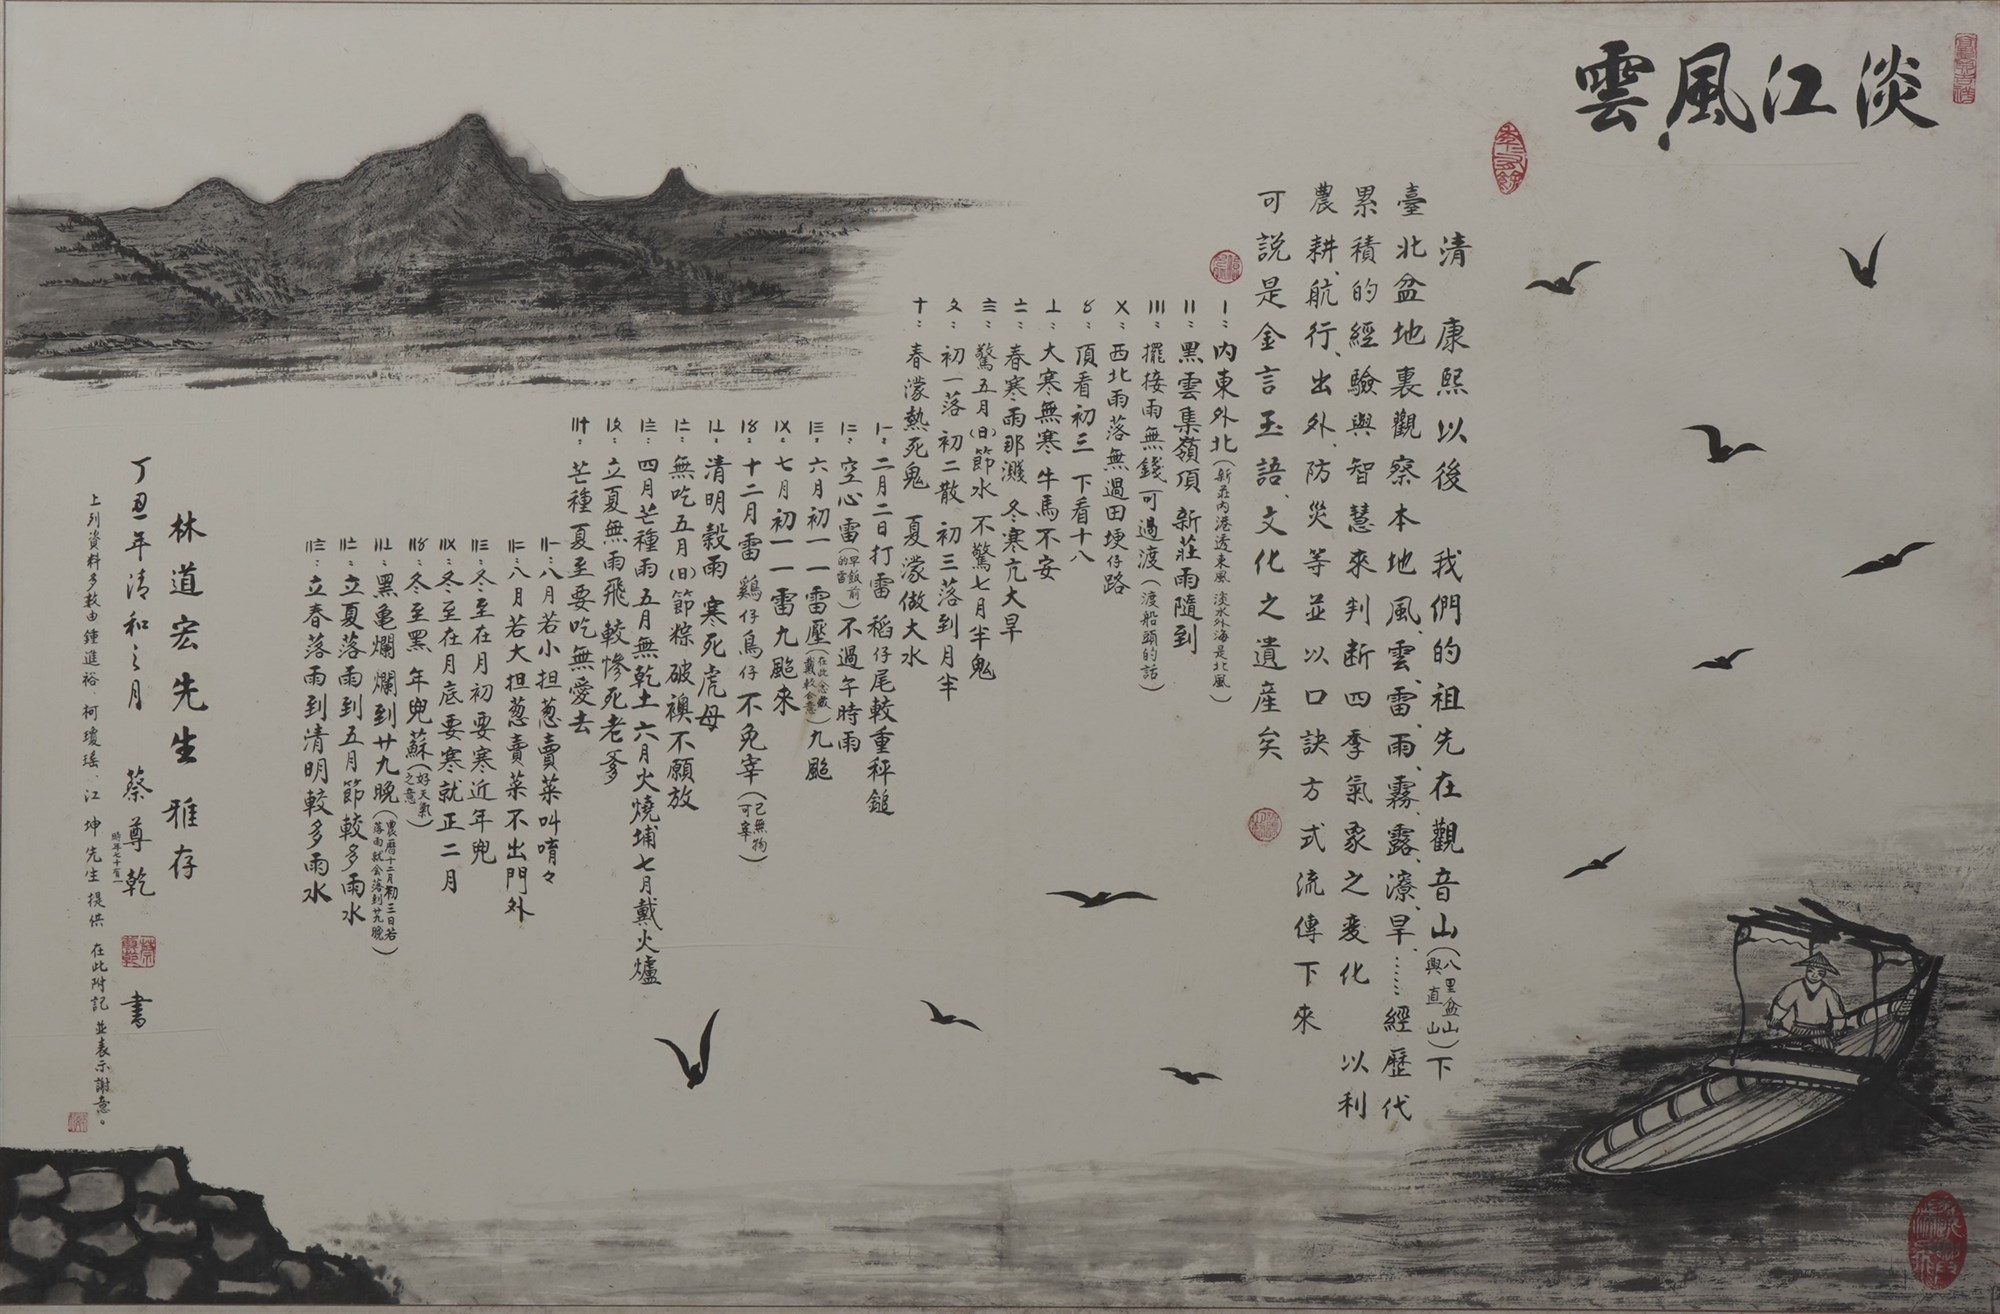 淡江風雲
清康熙以後我們的祖先在觀音山(八里盆山興直山)下
臺北盆地裏觀察本地風、雲、雷、雨、霧、露、潦、旱、……經歷代
累積的經驗與智慧來判断四季氣象之変化以利
農耕、航行、出外、防災等並以口訣方式流傳下來
可説是金言玉語、文化之遺産矣
〡:內東外北(新莊內港透東風淡水外海是北風)
〢:黑雲集嶺頂 新莊雨隨到
〣:擺接雨無錢可過渡(渡船頭的話)
〤:西北雨落無過田埂仔路
〥:頂看初三 下看十八
〦:大寒無寒 牛馬不安
〧:春寒雨那濺 冬寒亢大旱
〨:驚五月(日)節水 不驚七月半鬼
〩:初一落 初二散 初三落到月半
十:春濛熱死鬼 夏濛做大水
〸〡:二月二日打雷 稻仔尾較重秤鎚
〸〢:空心雷(早飯前的雷)不過午時雨
〸〣:六月初一 一雷壓(在此念戴戴較合意)九颱
〸〤:七月初一 一雷九颱来
〸〥:十二月雷 鷄仔鳥仔不免宰(已無物可宰)
〸〦:清明穀雨 寒死虎母
〸〧:無吃五月(日)節粽 破襖不願放
〸〨:四月芒種雨 五月無乾土 六月火燒埔 七月戴火爐
〸〩:立夏無雨飛 較慘死老爹
〢十:芒種夏至要吃無愛去
〢〸〡:八月若小担葱賣菜叫唷々
〢〸〢:八月若大担葱賣菜不出門外
〢〸〣:冬至在月初要寒近年兜
〢〸〤:冬至在月底要寒就正二月
〢〸〥:冬至黑 年兜蘇(好天氣之意)
〢〸〦:黑亀爛 爛到廿九晚(農曆十二月初三日若落雨就会落到廿九晚)
〢〸〧:立夏落雨到五月節較多雨水
〢〸〨:立春落雨到清明較多雨水
林道宏先生 雅存
丁丑年清和之月 蔡尊乾 時年七十有一 書
上列資料多数由鍾進裕、柯瓊瑤、江坤先生提供 在此附記 並表示謝意。